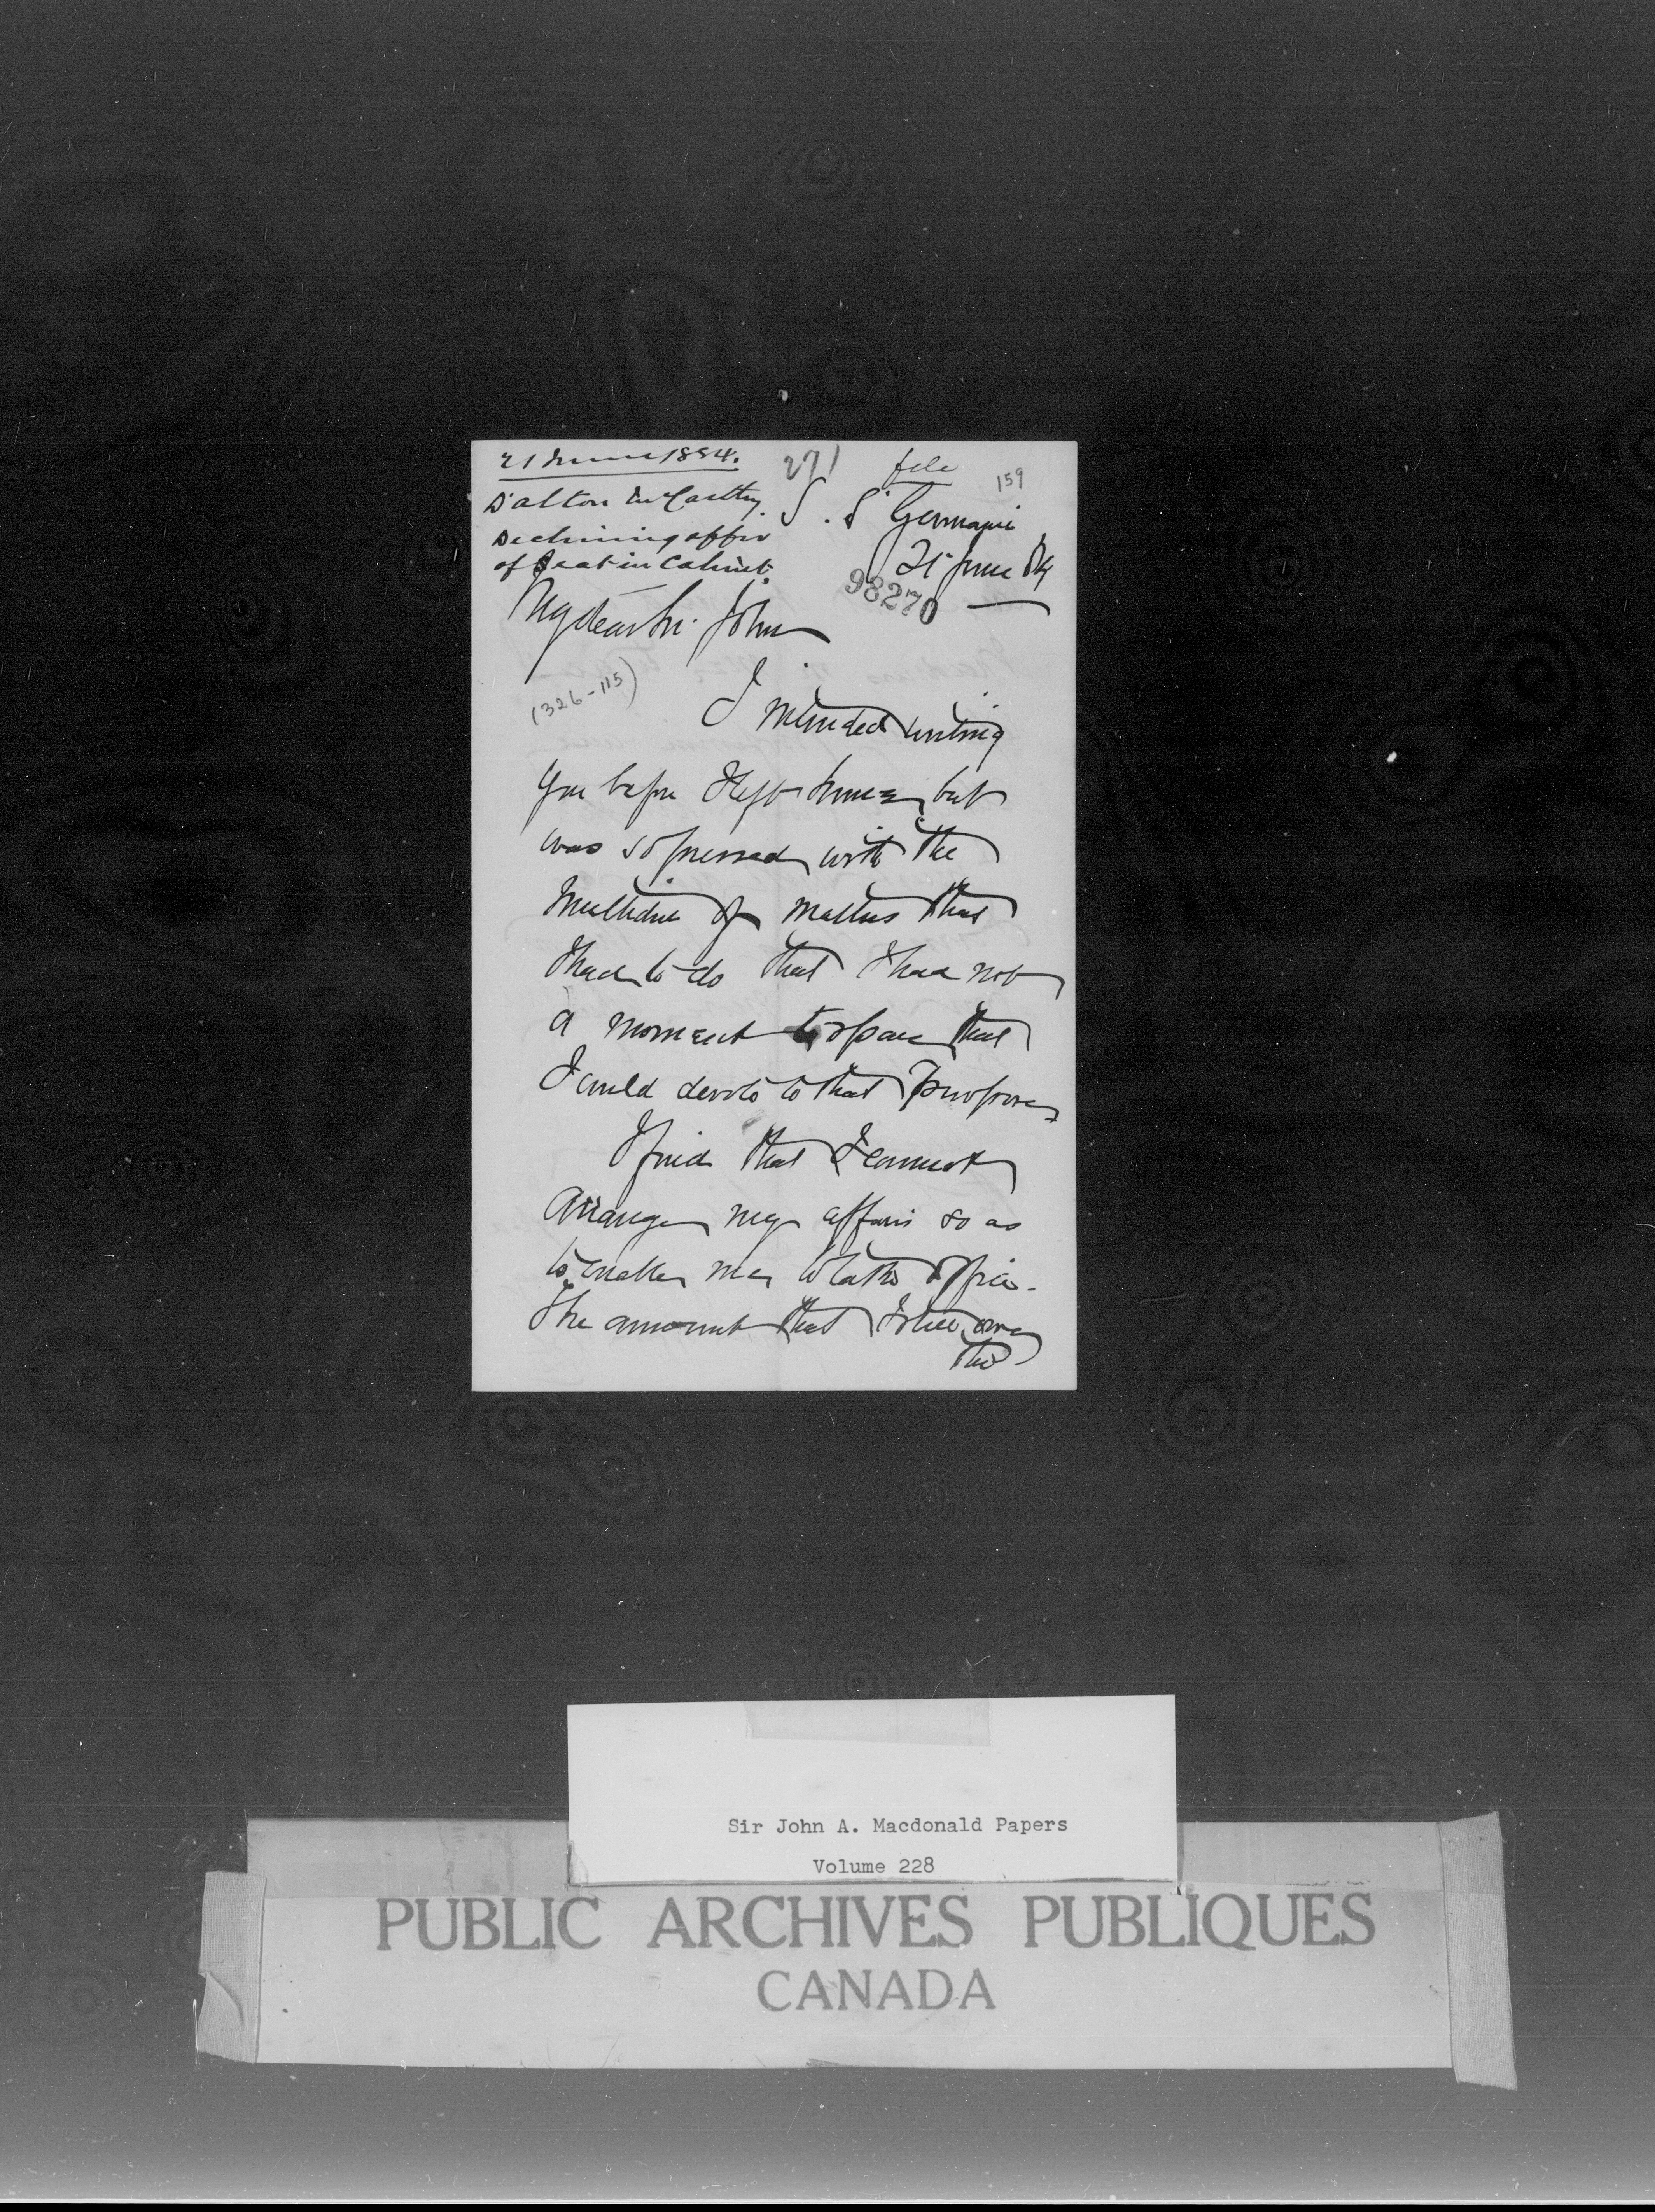 21 June 1884.
271
file
159
Dalton McCarthy.
Declining offer
of Seat in Cabinet.
S. S Germanic
21 June 84
98270
My dear Sir John
(326-115)
I intended writing
you before I left home, but
was so pressed with the
multitude of matters that
I had to do that I had not
a moment to spare that
I could devote to that purpose
I find that I cannot
arrange my affairs so as
to enable me to take office.
The amount that I still owe
the
Sir John A. Macdonald Papers
Volume 228
PUBLIC ARCHIVES PUBLIQUES
CANADA